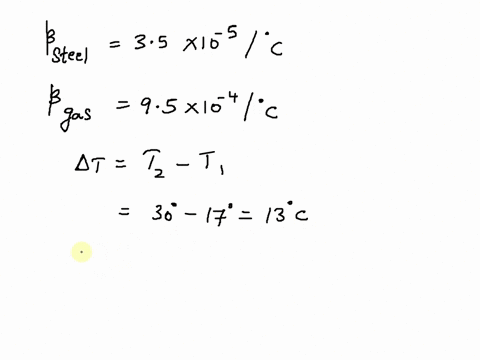 β_steel = 3.5 × 10^-5 / °C
β_gas = 9.5 × 10^-4 / °C
ΔT = T_2 - T_1
= 30° - 17° = 13°C